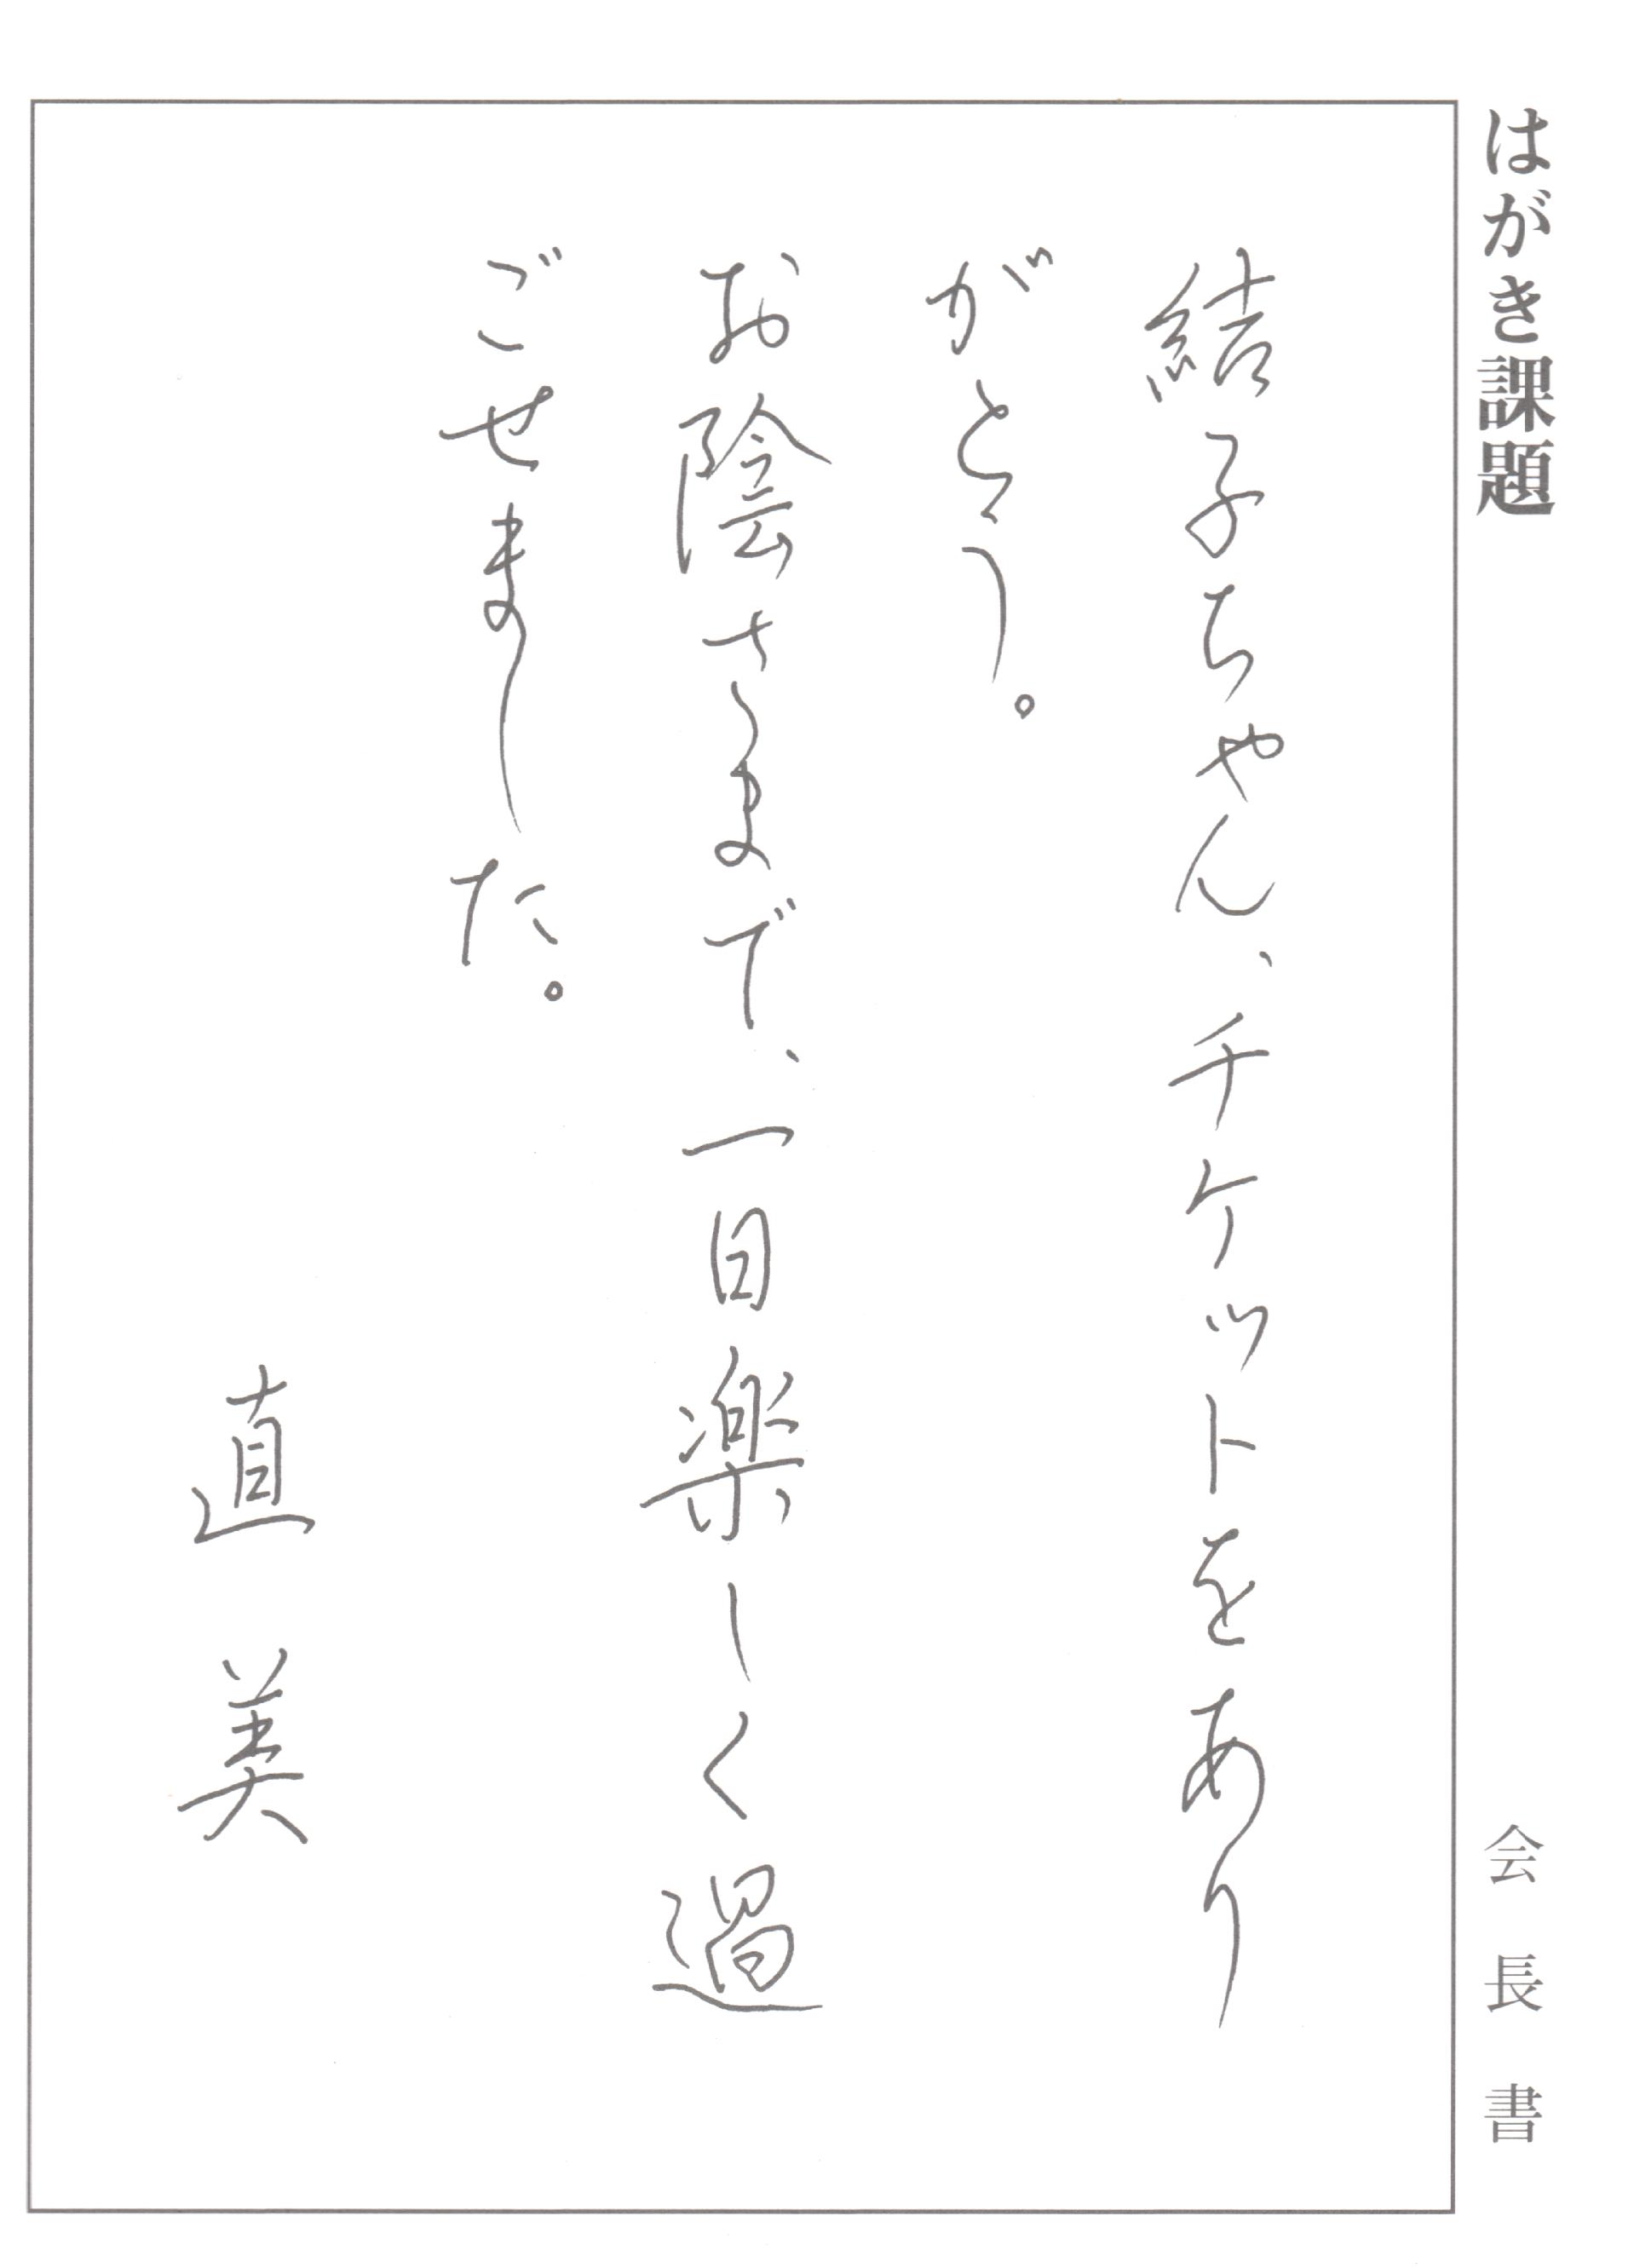 はがき課題　会長書
結子ちゃん、チケットをあり
がとう。
お陰さまで、一日楽しく過
ごせました。
直美